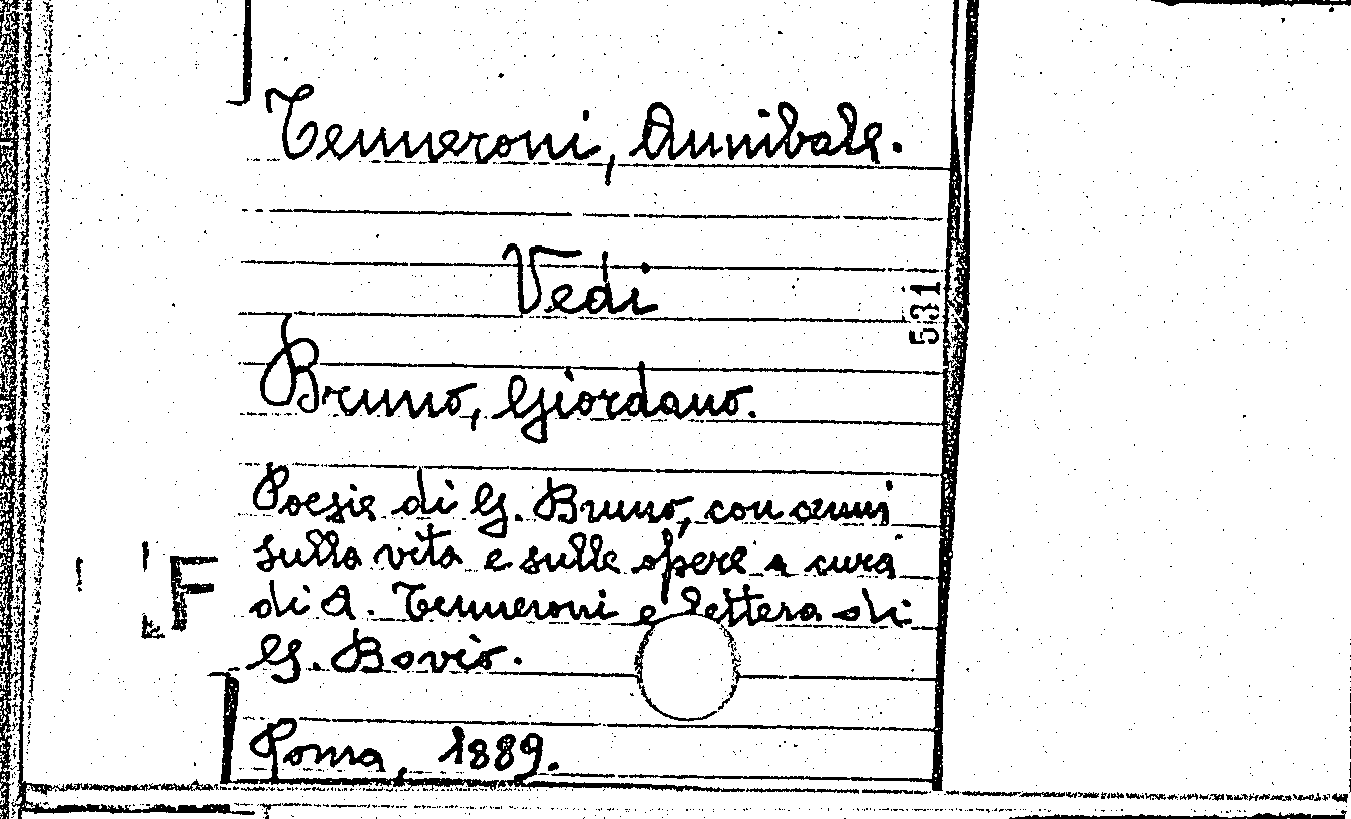 Tenneroni, Annibale.
Vedi
531
Bruno, Giordano.
Poesie di G. Bruno, con cenni
sulla vita e sulle opere a cura
di A. Tenneroni e lettera di
G. Bovio.
Roma, 1889.